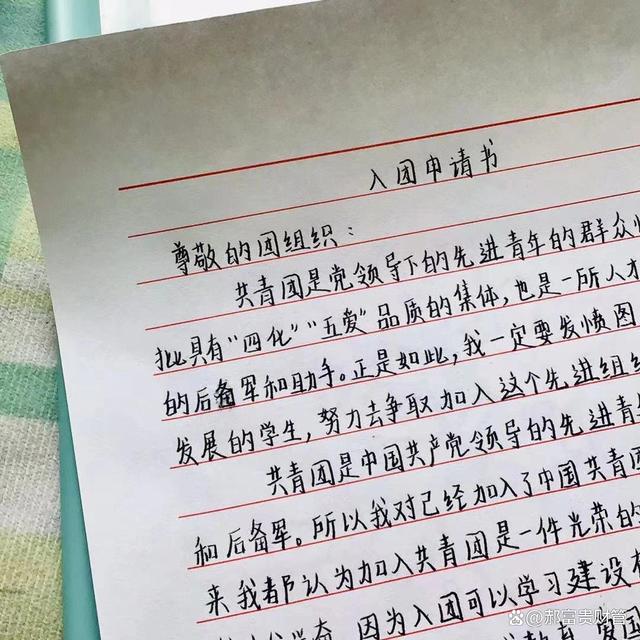 入团申请书
尊敬的团组织：
共青团是党领导下的先进青年的群众
批具有“四化”“五爱”品质的集体，也是一所人才
的后备军和助手。正是如此，我一定要发愤图
发展的学生，努力去争取加入这个先进组织
共青团是中国共产党领导的先进青
和后备军。所以我对已经加入了中国共青团
来我都认为加入共青团是一件光荣的
因为入团可以学习建设有
郝富贵财管